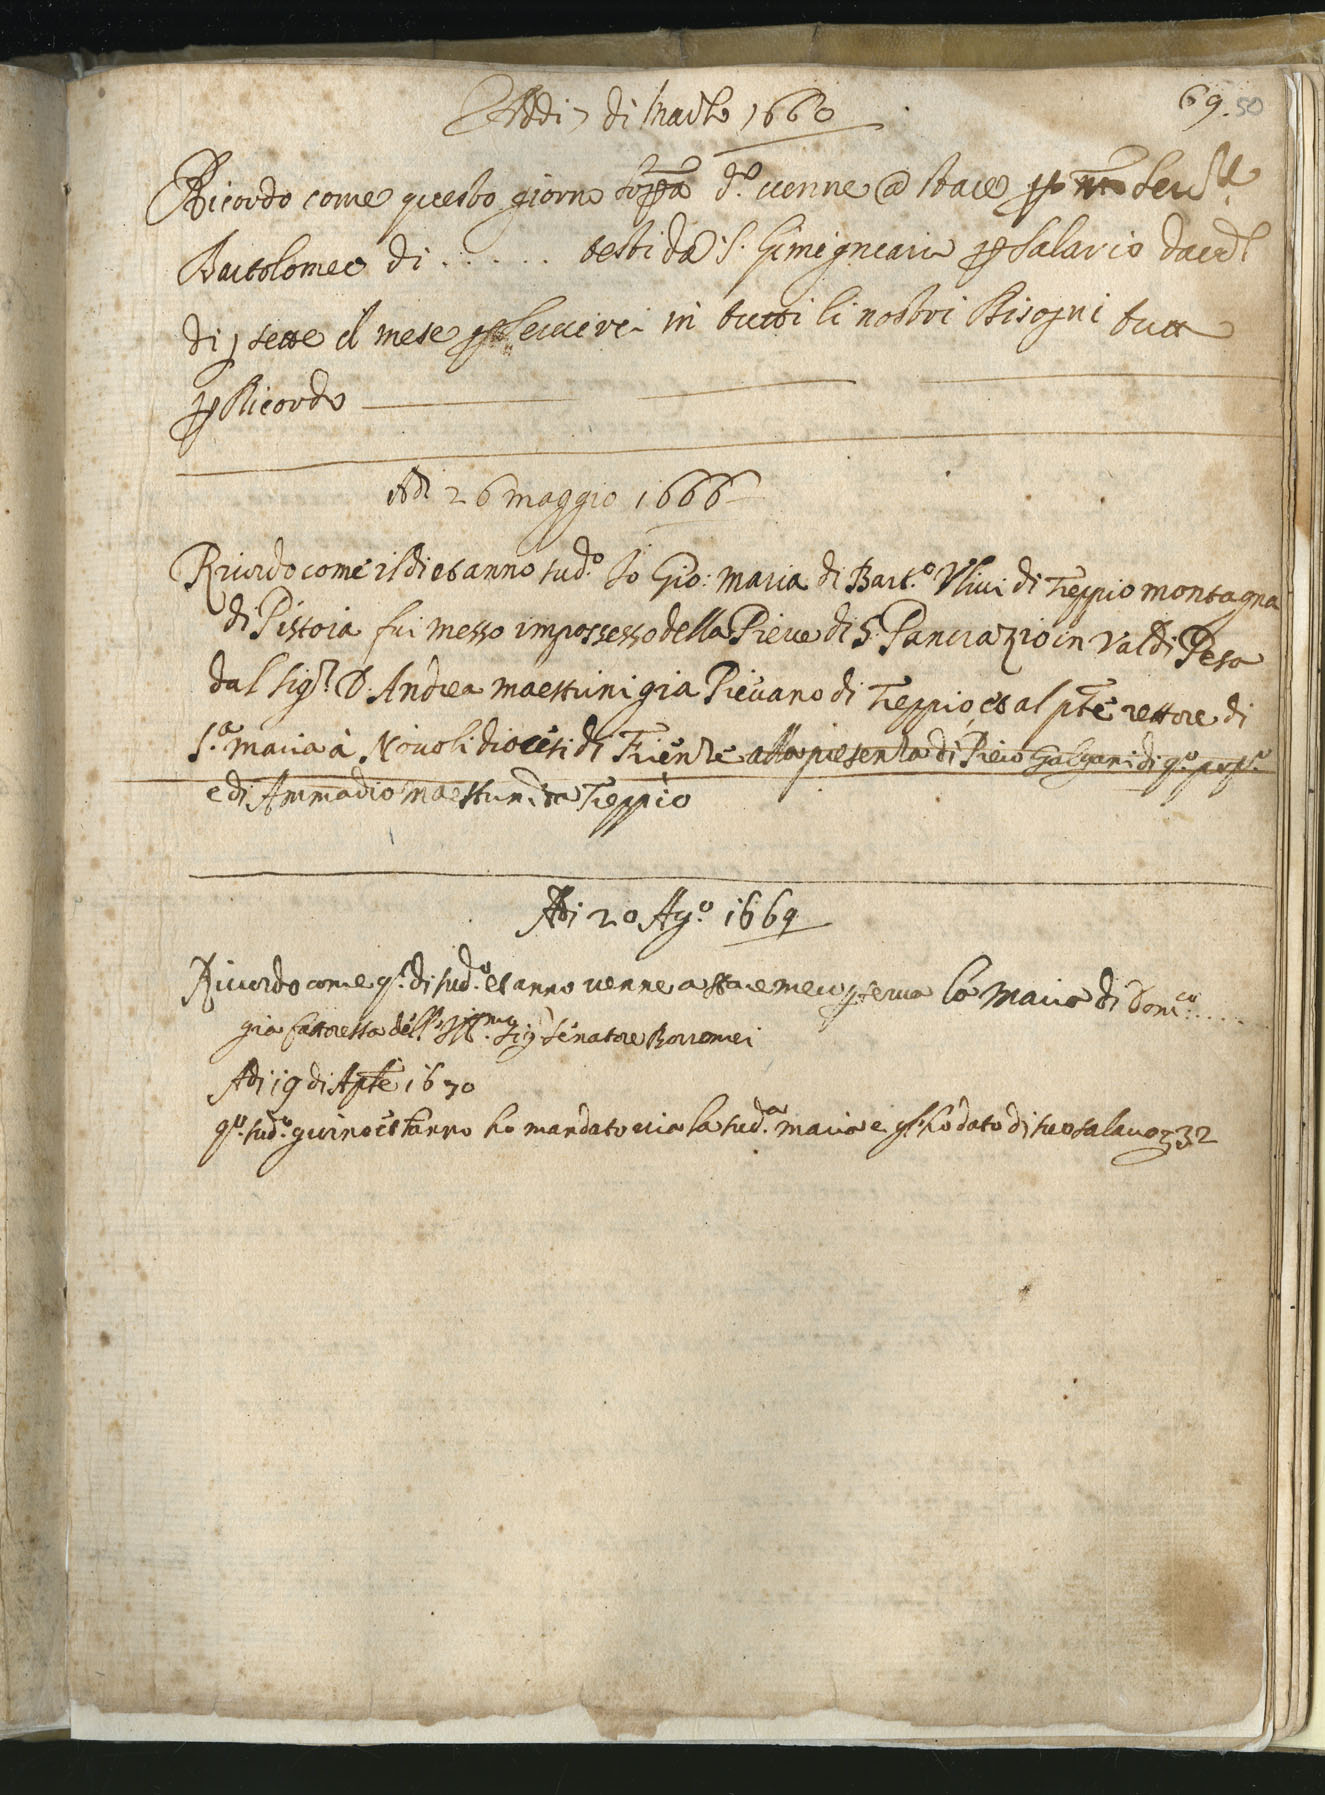 69. 50
Addi 7 di Marzo 1660
Ricordo come questo giorno soppa d.º venne a stare per
Bartolomeo di . . . . . . testi da S. Gimigneani per salario
di sette il mese per servire in tutti li nostri Bisogni tutt
per Ricordo
Adi 26 maggio 1666
Ricordo come il di et anno sud.º Io Gio: Maria di Bart.º Ulivi di Treppio montagna
di Pistoia fui messo impossesso della Pieve di S. Pancrazio in Val di Pesa
dal Sig.r D. Andrea maestrini gia Pievano di Treppio, et al pñte rettore di
S.a Maria à Novoli diocesi di Firenze alla presenza di Piero Galgani di q.º pop.º
e di Ammadio maestrini da Treppio
Adi 20 Ag.º 1669
Ricordo come q.º di sud.º et anno venne a stare meco per serva la Maria di Dom.co . . . . .
gia fattoressa dell' Ill.mo Sig.r Senatore Borromei
Adi 19 di Aple 1670
q.º sud.º giorno et anno ho mandato via la sud.a Maria e gl'ho dato di suo salario 32